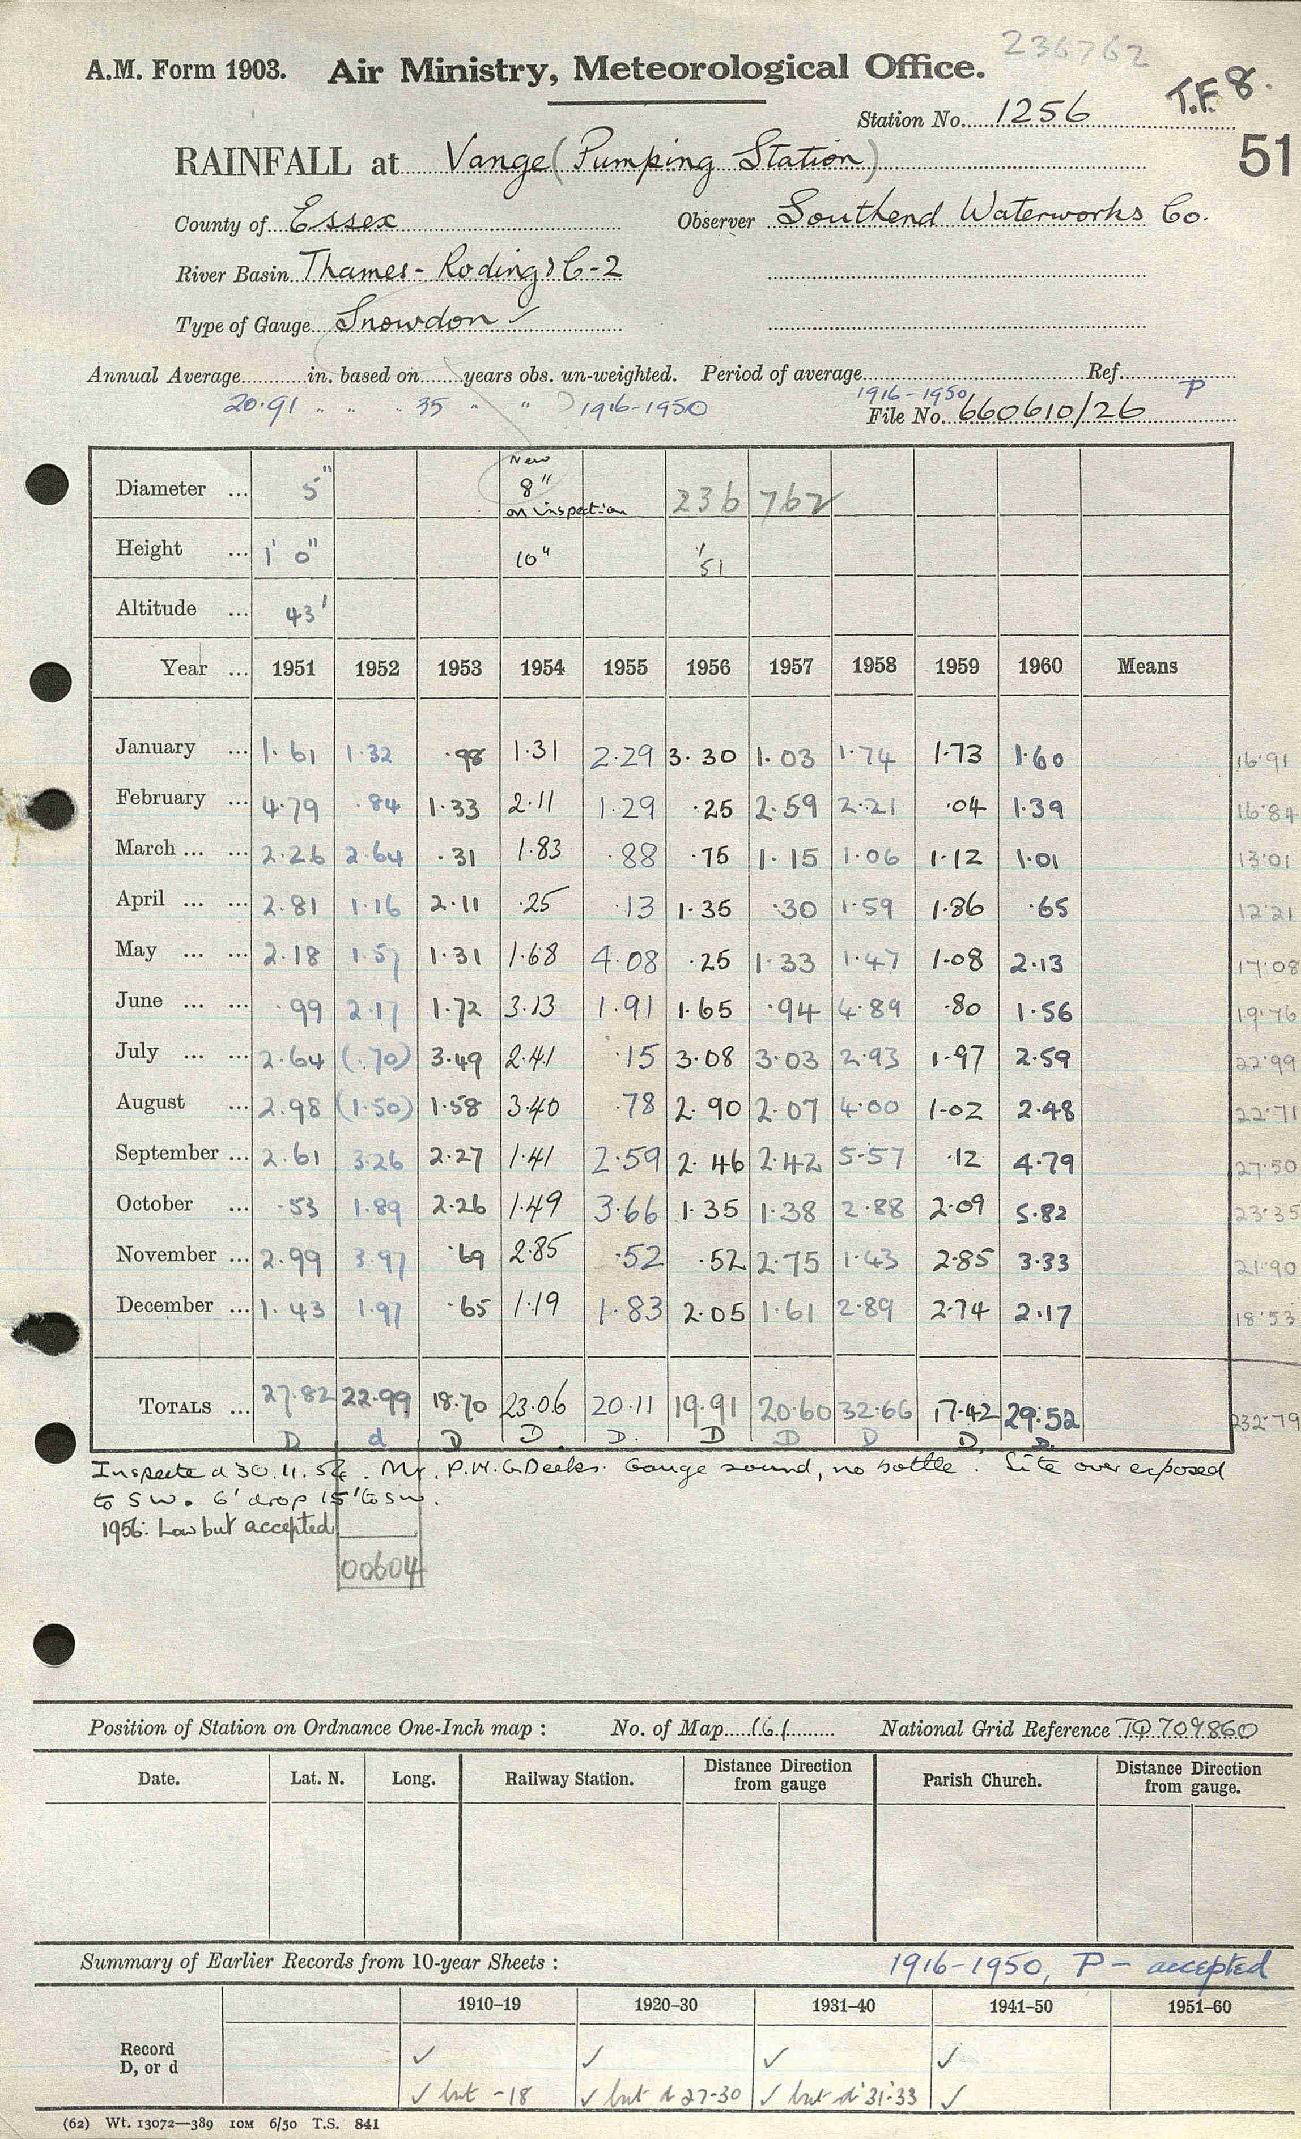 236762
A.M. Form 1903. Air Ministry, Meteorological Office.
T.F 8.
Station No. 1256
51
RAINFALL at Vange (Pumping Station)
County of Essex Observer Southend Waterworks Co.
River Basin Thames - Roding & C-2
Type of Gauge Snowdon ✓
Annual Average in. based on years obs. un-weighted. Period of average Ref.
20.91 " " " 35 " " 1916-1950 1916-1950 P
File No. 660610/26
Diameter ... 5" New 8" on inspection 236 762
Height ... 1' 0" 10" 1/51
Altitude ... 43'
Year ... 1951 1952 1953 1954 1955 1956 1957 1958 1959 1960 Means
January ... 1.61 1.32 .98 1.31 2.29 3.30 1.03 1.74 1.73 1.60 16.91
February ... 4.79 .84 1.33 2.11 1.29 .25 2.59 2.21 .04 1.39 16.84
March ... ... 2.26 2.64 .31 1.83 .88 .75 1.15 1.06 1.12 1.01 13.01
April ... ... 2.81 1.16 2.11 .25 .13 1.35 .30 1.59 1.86 .65 12.21
May ... ... 2.18 1.57 1.31 1.68 4.08 .25 1.33 1.47 1.08 2.13 17.08
June ... ... .99 2.17 1.72 3.13 1.91 1.65 .94 4.89 .80 1.56 19.76
July ... ... 2.64 (.70) 3.49 2.41 .15 3.08 3.03 2.93 1.97 2.59 22.99
August ... 2.98 (1.50) 1.58 3.40 .78 2.90 2.07 4.00 1.02 2.48 22.71
September ... 2.61 3.26 2.27 1.41 2.59 2.46 2.42 5.57 .12 4.79 27.50
October ... .53 1.89 2.26 1.49 3.66 1.35 1.38 2.88 2.09 5.82 23.35
November ... 2.99 3.97 .69 2.85 .52 .52 2.75 1.43 2.85 3.33 21.90
December ... 1.43 1.97 .65 1.19 1.83 2.05 1.61 2.89 2.74 2.17 18.53
TOTALS ... 27.82 22.99 18.70 23.06 20.11 19.91 20.60 32.66 17.42 29.52 232.79
D d D D. D. D D D D. D.
Inspected 30.11.54. Mr. P.H.G. Deeks. Gauge sound, no bottle. Site over exposed
to SW. 6' drop 15' to SW.
1956: Low but accepted
00604
Position of Station on Ordnance One-Inch map : No. of Map 161 National Grid Reference TQ 709860
Date. Lat. N. Long. Railway Station. Distance Direction from gauge Parish Church. Distance Direction from gauge.
Summary of Earlier Records from 10-year Sheets : 1916-1950, P - accepted
1910-19 1920-30 1931-40 1941-50 1951-60
Record D, or d ✓ ✓ ✓ ✓
✓ but -18 ✓ but d 27-30 ✓ but d 31-33 ✓
(62) Wt. 13072—389 10M 6/50 T.S. 841